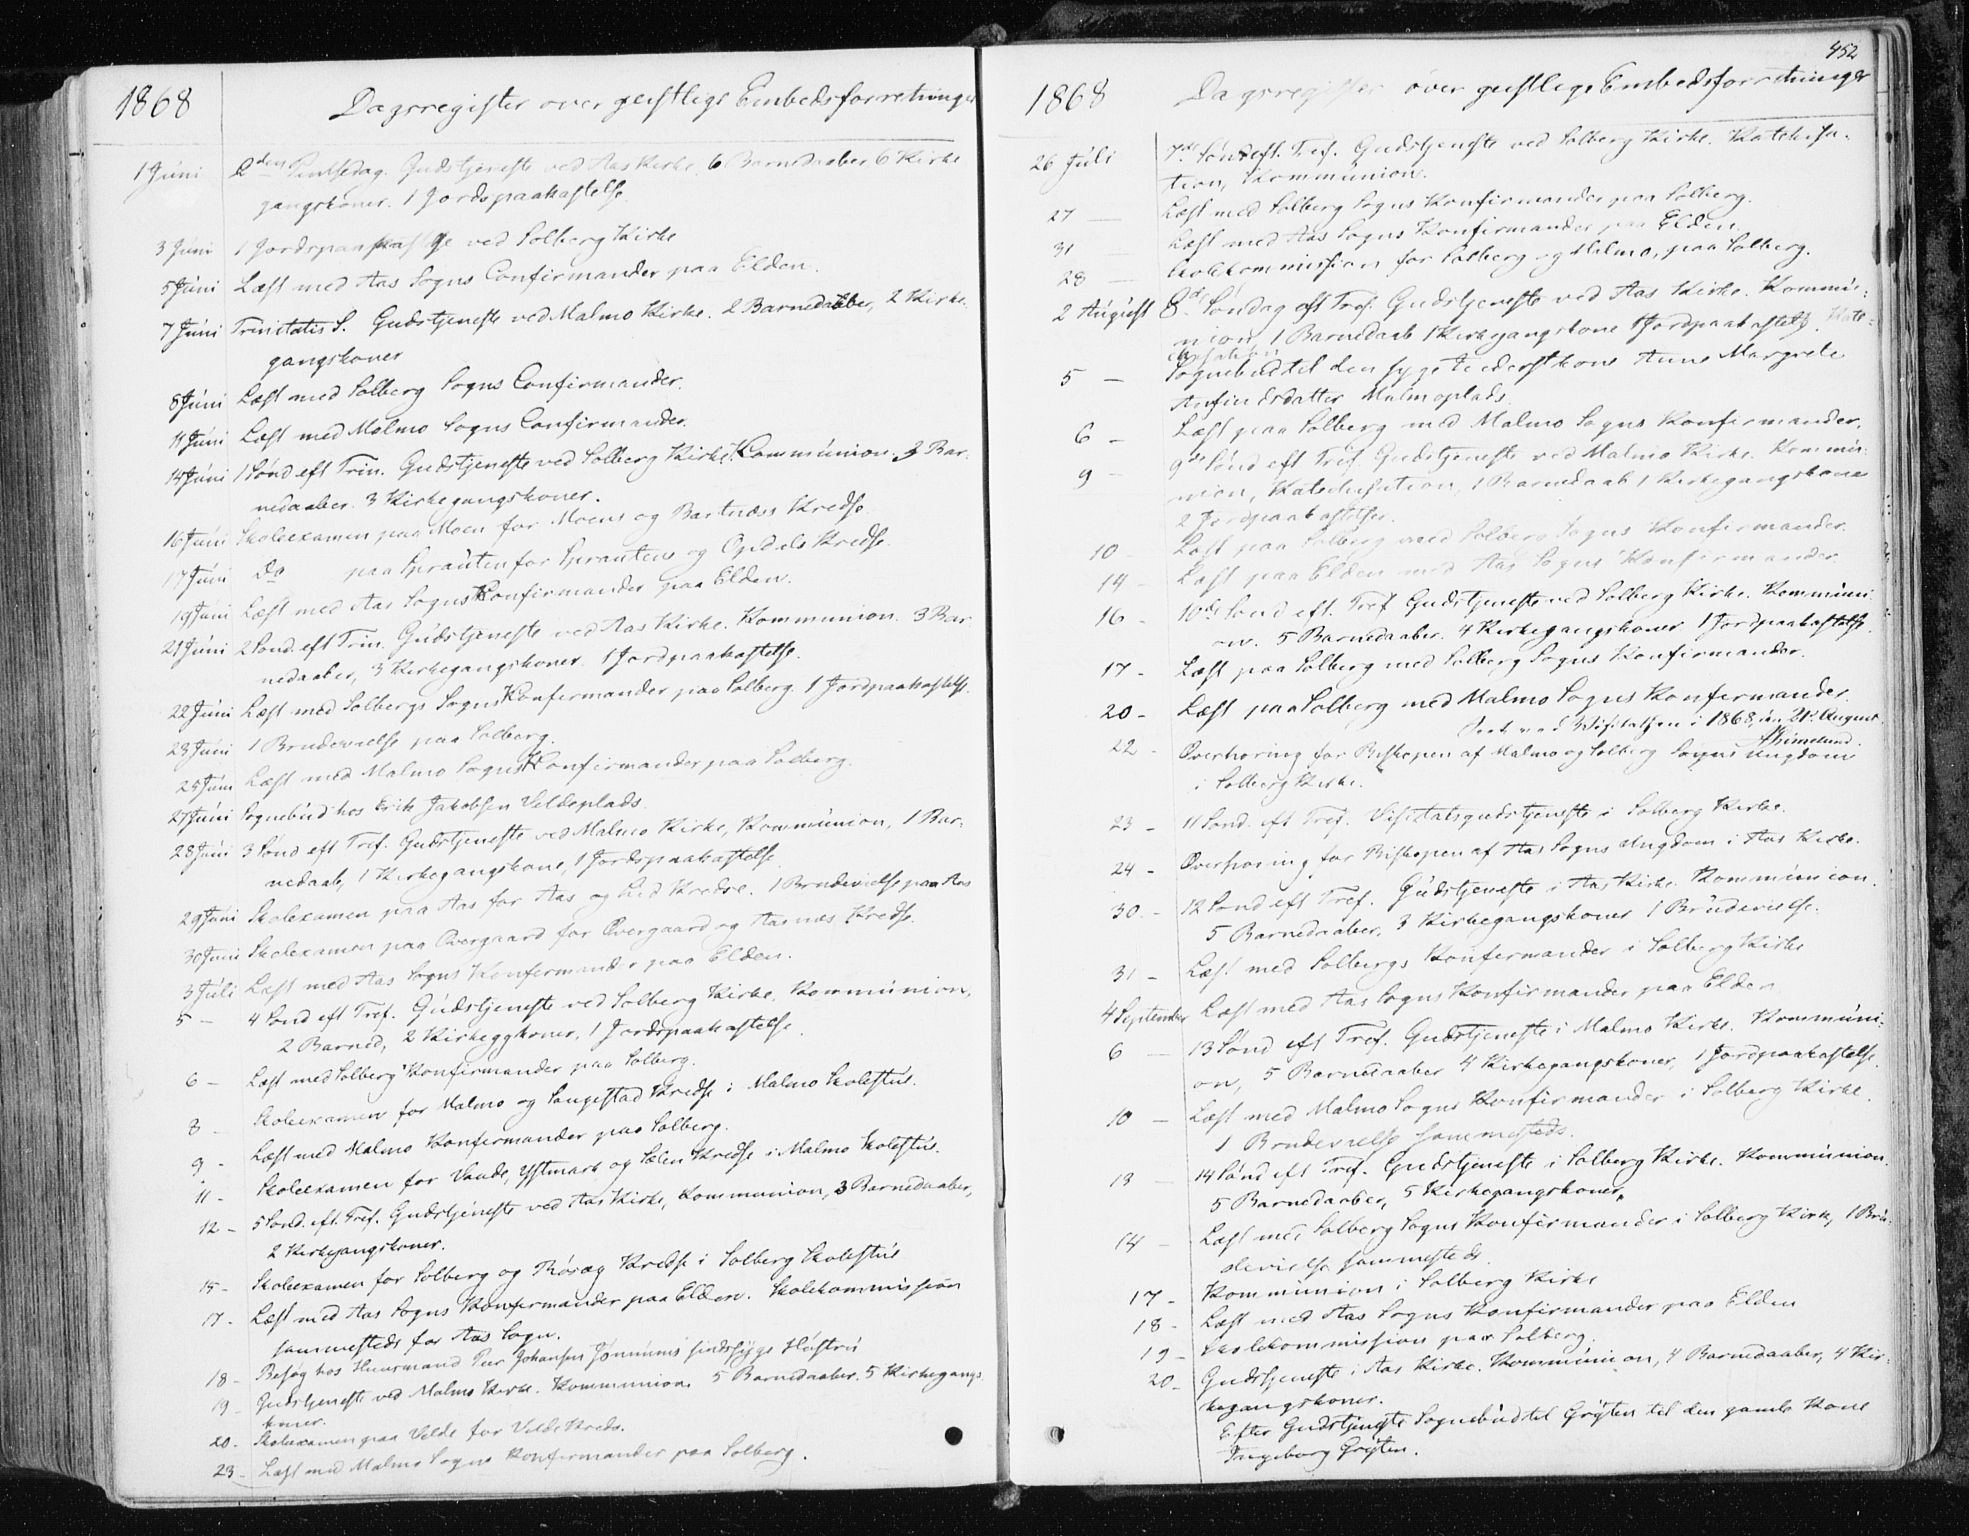 1868 Dagsregister over geistlige Embedsforretninger
1 Juni 2den Pintsedag. Gudstjeneste ved Aas Kirke. 6 Barnedaaber 6 Kirke
gangskoner. 1 Jordspaakastelse.
3 Juni 1 Jordspaakastelse ved Solberg Kirke
5 Juni Læst med Aas Sogns Confirmander paa Elden.
7 Juni Trinitatis S. Gudstjeneste ved Malmo Kirke. 2 Barnedaaber, 2 Kirke-
gangskoner
8 Juni Læst med Solberg Sogns Confirmander.
11 Juni Læst med Malmo Sogns Confirmander.
14 Juni 1 Sönd eft Trin. Gudstjeneste ved Solberg Kirke. Communion. 3 Bar-
nedaaber. 3 Kirkegangskoner.
16 Juni Skoleexamen paa Moen for Moens og Bartnæss Kredse.
17 Juni Do paa Sprauten for Sprautens og Opdals Kredse.
19 Juni Læst med Aas Sogns Konfirmander paa Elden.
21 Juni 2 Sönd. eft Trin. Gudstjeneste ved Aas Kirke. Kommunion. 3 Bar
nedaaber, 3 Kirkegangskoner. 1 Jordpaakastelse.
22 Juni Læst med Solbergs Sogns Konfirmander paa Solberg. 1 Jordpaakastelse.
23 Juni 1 Brudevielse paa Solberg.
25 Juni Læst med Malmo Sogns Konfirmander paa Solberg.
27 Juni Sognebud hos Erik Jakobsen Veldeplads.
28 Juni 3 Sönd eft Tref. Gudstjeneste ved Malmo Kirke, Kommunion, 1 Bar-
nedaab, 1 Kirkegangskone, 1 Jordspaakastelse
29 Juni Skolexamen paa Aas for Aas og Lid Kredse. 1 Brudevielse paa Aas
30 Juni Skolexamen paa Overgaard for Overgaard og Aasnes Kredse.
3 Juli Læst med Aas Sogns Konfirmander paa Elden.
5 - 4 Sönd eft Tref. Gudstjeneste ved Solberg Kirke. Kommunion,
2 Barned, 2 Kirkeggkoner, 1 Jordspaakastelse.
6 - Læst med Solberg Konfirmander paa Solberg.
8 - Skoleexamen for Malmo og Sangestad Kredse i Malmo Skolestue.
9 - Læst med Malmo Konfirmander paa Solberg.
11 - Skoleexamen for Vaade, Ystmark og Sælen Kredse i Malmo Skolestue.
12 - 5 Sönd. eft. Tref. Gudstjeneste ved Aas Kirke, Kommunion, 3 Barnedaaber,
2 Kirkegangskoner.
15 - Skoleexamen for Solberg og Rösæg Kredse i Solberg Skolestue
17 - Læst med Aas Sogns Konfirmander paa Elden. Skolekommission
sammesteds for Aas Sogn.
18 - Besög hos Huusmand Peer Johansen sindssyge Hustru
19 - Gudstjeneste ved Malmo Kirke. Kommunion. 5 Barnedaaber. 5 Kirkegangs
koner.
20 - Skoleexamen paa Velde for Velde Kreds.
23 - Læst med Malmo Sogns Konfirmander paa Solberg.
452
1868 Dagsregister over geistlige Embedsforretninger
26 Juli 7de Sönd eft. Tref. Gudstjeneste ved Solberg Kirke. Katekisa-
tion, Kommunion.
27 - Læst med Solberg Sogns Konfirmander paa Solberg.
31 - Læst med Aas Sogns Konfirmander paa Elden.
28 - Skolekommission for Solberg og Malmo, paa Solberg.
2 August 8de Söndag eft Tref. Gudstjeneste ved Aas Kirke. Kommu-
nion, 1 Barnedaab 1 Kirkegangskone 1 Jordpaakastelse. Kate-
kisation
5 - Sognebud til den syge Inderstkone Anne Margrete
Anfindsdatter Malmoplads.
6 - Læst paa Solberg med Malmo Sogns Konfirmander.
9 - 9de Sönd eft Tref. Gudstjeneste ved Malmo Kirke. Kommu-
nion, Katechisation, 1 Barnedaab 1 Kirkegangskone
2 Jordpaakastelser.
10 - Læst paa Solberg med Solberg Sogns Konfirmander.
14 - Læst paa Elden med Aas Sogns Konfirmander.
16 - 10de Sönd eft. Tref Gudstjeneste ved Solberg Kirke. Kommuni-
on. 5 Barnedaaber. 4 Kirkegangskoner 1 Jordpaakastelse.
17 - Læst paa Solberg med Solberg Sogns Konfirmander.
20 - Læst paa Solberg med Malmo Sogns Konfirmander
Seet ved Visitatsen i 1868, den 21de August.
Grimelund.
22 - Overhöring for Biskopen af Malmo og Solberg Sogns Ungdom
i Solberg Kirke.
23 - 11 Sönd. eft Tref. Visitatsgudstjeneste i Solberg Kirke.
24 - Overhöring for Biskopen af Aas Sogns Ungdom i Aas Kirke.
30 - 12 Sönd eft Tref. Gudstjeneste i Aas Kirke. Kommunion.
5 Barnedaaber, 3 Kirkegangskoner 1 Brudevielse.
31 - Læst med Solbergs Konfirmander i Solberg Kirke
4 September Læst med Aas Sogns Konfirmander paa Elden
6 - 13 Sönd eft Tref. Gudstjeneste i Malmo Kirke. Kommuni-
on, 5 Barnedaaber 4 Kirkegangskoner, 1 Jordpaakastelse.
10 - Læst med Malmo Sogns Konfirmander i Solberg Kirke.
1 Brudevielse sammesteds.
13 - 14 Sönd eft Tref. Gudstjeneste i Solberg Kirke. Kommunion.
5 Barnedaaber, 5 Kirkegangskoner.
14 - Læst med Solberg Sogns Konfirmander i Solberg Kirke, 1 Bru-
devielse sammesteds.
17 - Kommunion i Solberg Kirke
18 - Læst med Aas Sogns Konfirmander paa Elden
19 - Skolekommission paa Solberg.
20 - Gudstjeneste i Aas Kirke. Kommunion, 4 Barnedaaber, 4 Kir-
kegangskoner.
Efter Gudstjeneste Sognebud til Gröften til den gamle Kone
Ingeborg Gröften.